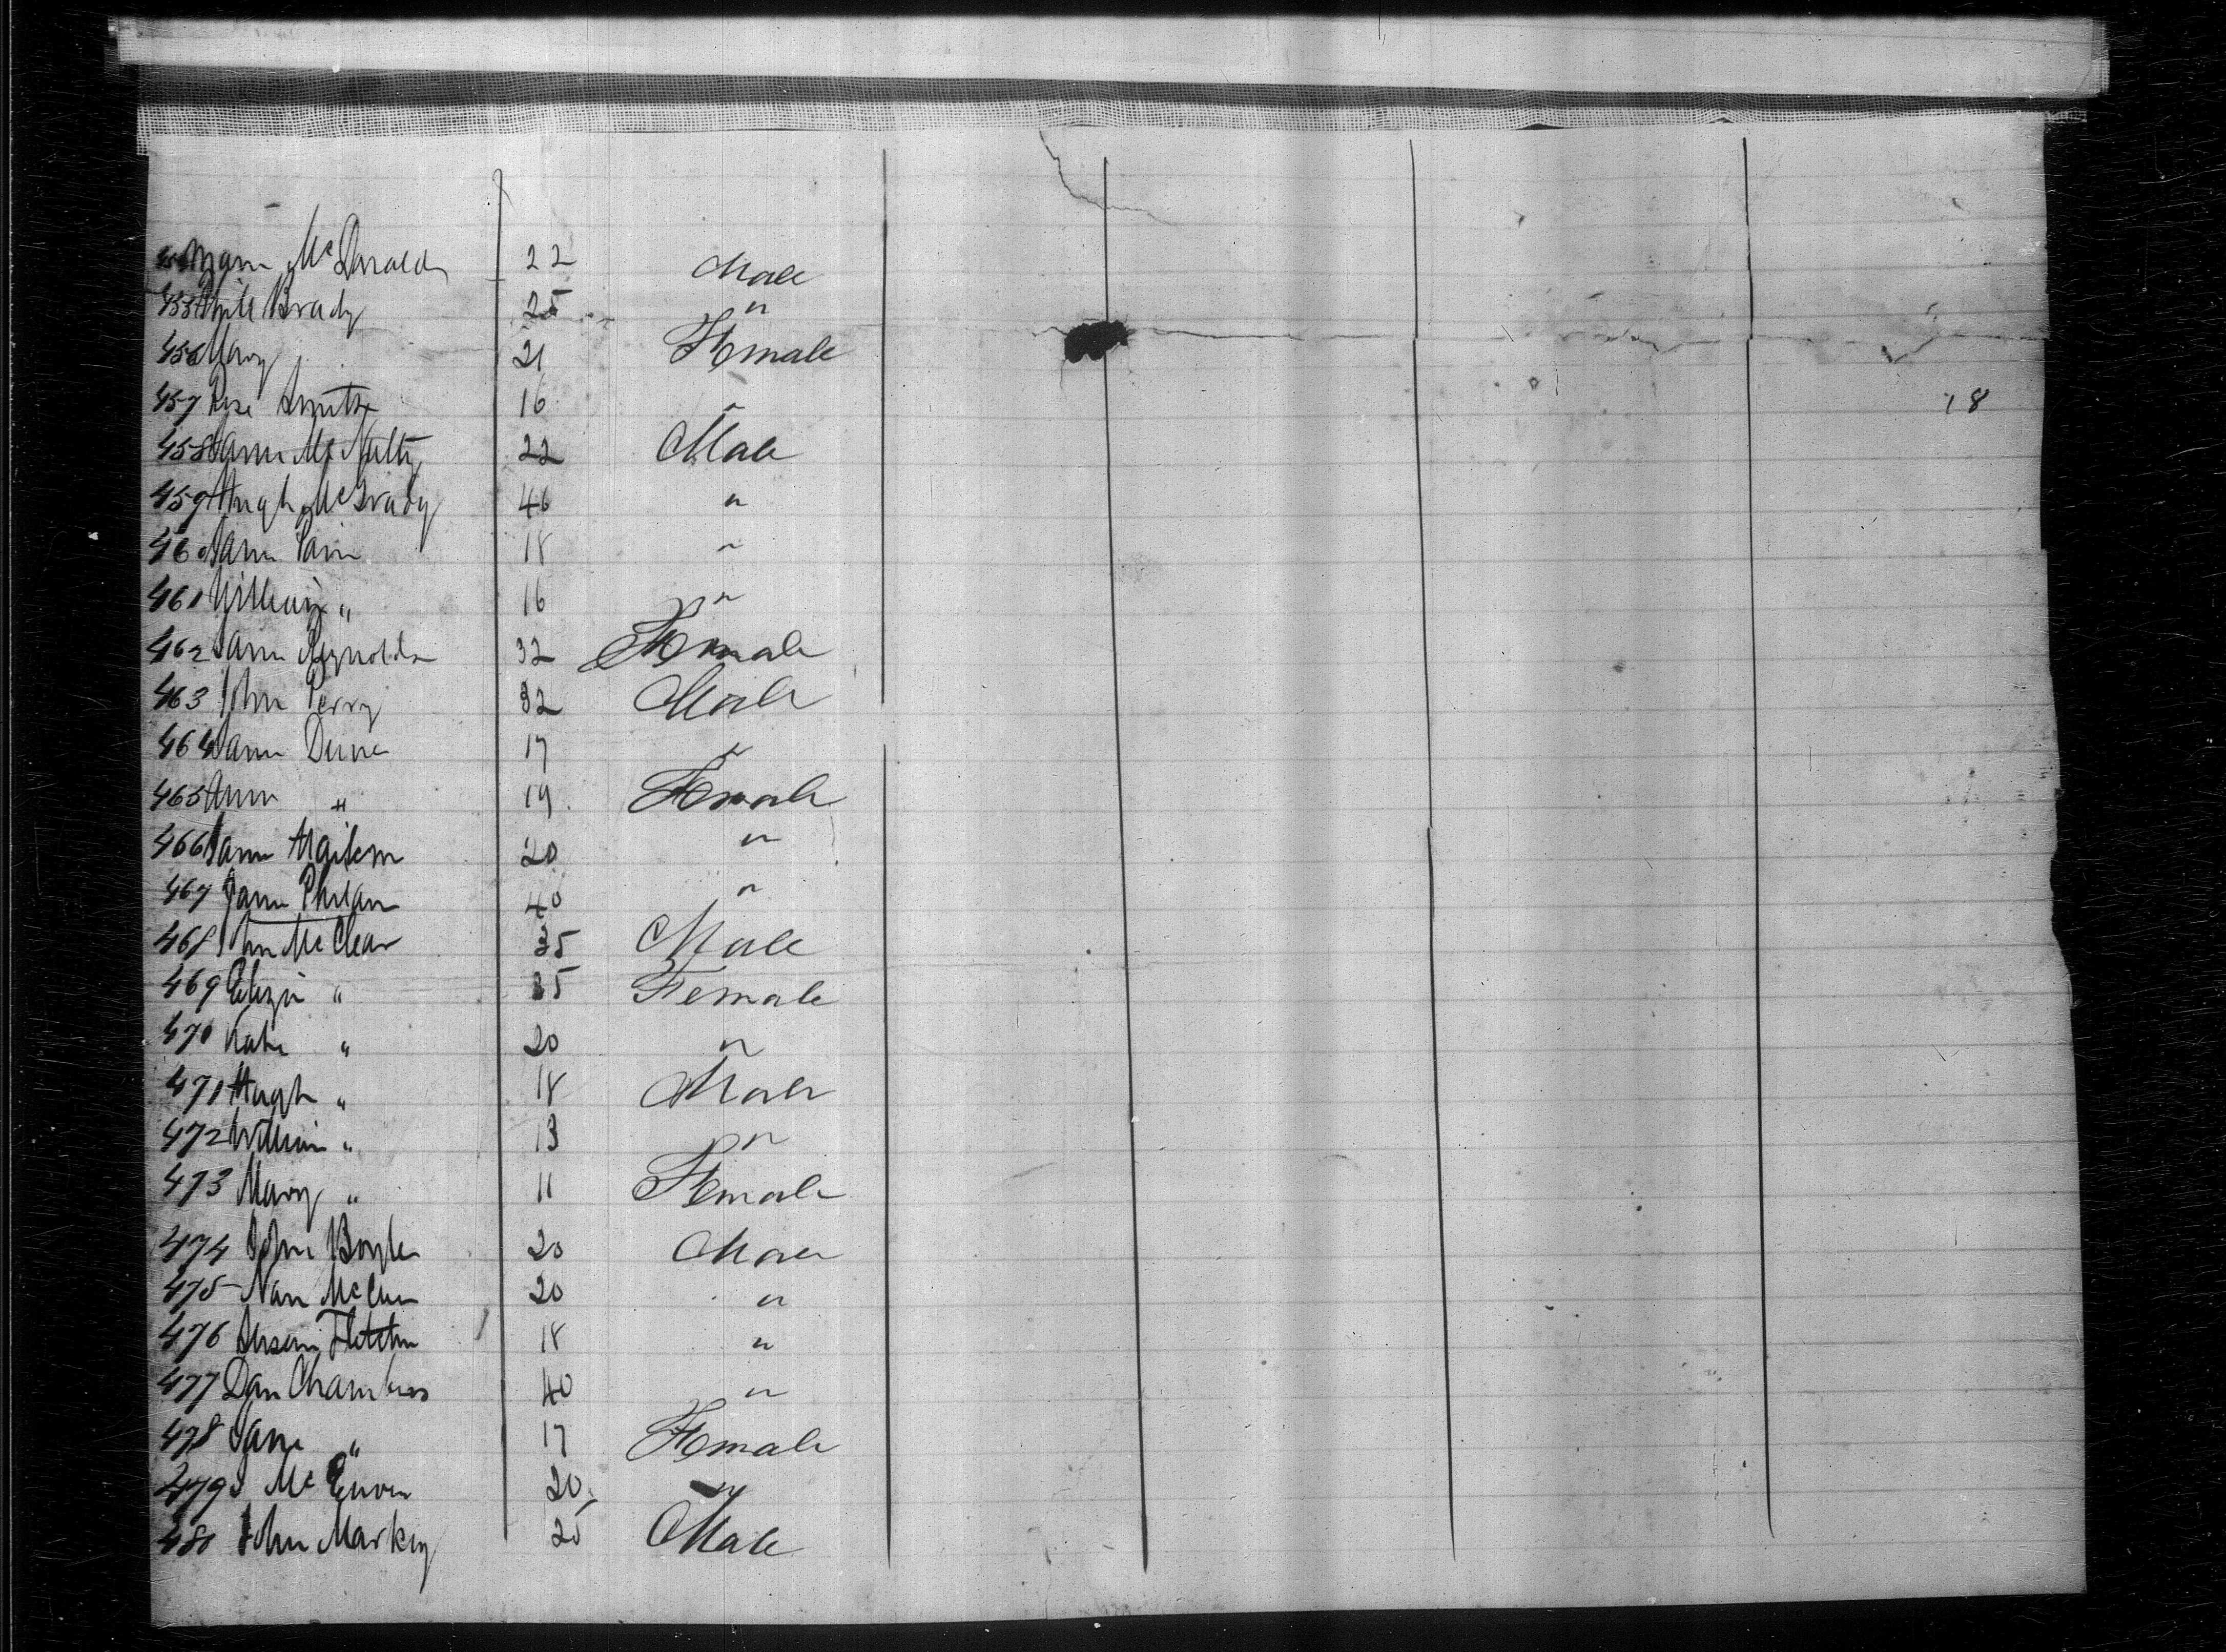 McDonald 22 Male
455 Brady 25 "
456 Mary 21 Female
457 Rose Smith 16 " 18
458 James McNulty 22 Male
459 Hugh McGrady 46 "
460 James 18 "
461 William " 16 "
462 Reynolds 32 Female
463 John Perry 32 Male
464 17 "
465 Ann " 19 Female
466 20 "
467 Phelan 40 "
468 John McClear 35 Male
469 Eliza " 35 Female
470 Kate " 20 "
471 Hugh " 18 Male
472 William " 13 "
473 Mary " 11 Female
474 John Boyle 20 Male
475 20 "
476 18 "
477 Dan Chambers 40 "
478 Jane " 17 Female
479 20 "
480 John Markey 25 Male